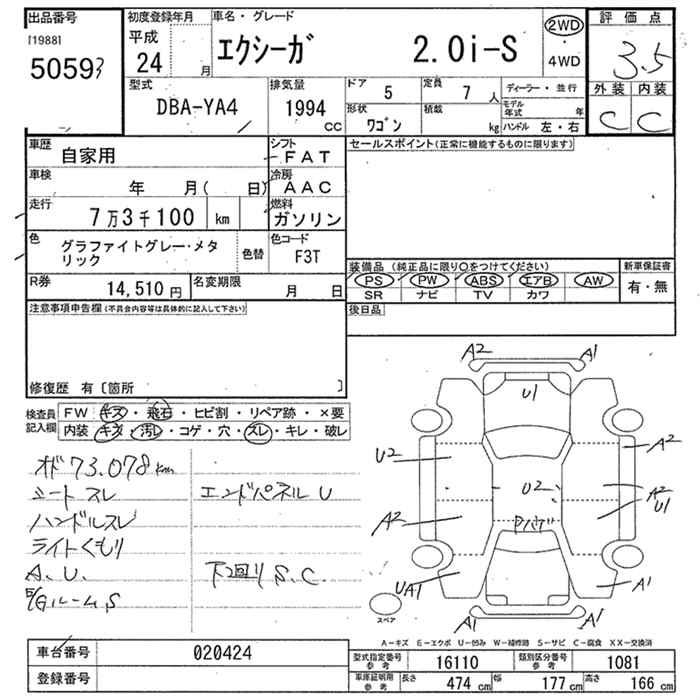 出品番号 初度登録年月 車名・グレード 評価点
[1988] 平成
5059 24 月 エクシーガ 2.0i-S 2WD・4WD 3.5
型式 排気量 ドア 5 定員 7 人 ディーラー・並行 外装 内装
DBA-YA4 1994 CC 形状 ワゴン 積載 kg モデル年式 年 C C
ハンドル 左・右
車歴 自家用 シフト FAT セールスポイント(正常に機能するものに限ります)
車検 年 月( 日) 冷房 AAC
走行 7万3千100 km 燃料 ガソリン
色 グラファイトグレー・メタリック 色替 色コード F3T
装備品(純正品に限り○をつけてください) 新車保証書
R券 14,510円 名変期限 月 日 PS PW ABS エアB AW 有・無
SR ナビ TV カワ
注意事項申告欄(不具合内容等は具体的に記入して下さい) 後日品
修復歴 有〔箇所 〕
検査員記入欄 FW キズ・飛石・ヒビ割・リペア跡・×要
内装 キズ・汚レ・コゲ・穴・スレ・キレ・破レ
A2 A1
U1
U2 A2
U2 A2
A2 U1
Pバブ
UA1 A1
A1 A1
スペア
オド73.078km
シートスレ エンドパネルU
ハンドルスレ
ライトくもり
A.U. 下回りS.C.
ルームS
A-キズ E-エクボ U-凹み W-補修跡 S-サビ C-腐食 XX-交換済
車台番号 020424
型式指定番号 参考 16110 類別区分番号 参考 1081
登録番号
車庫証明用 参考 長さ 474 cm 幅 177 cm 高さ 166 cm